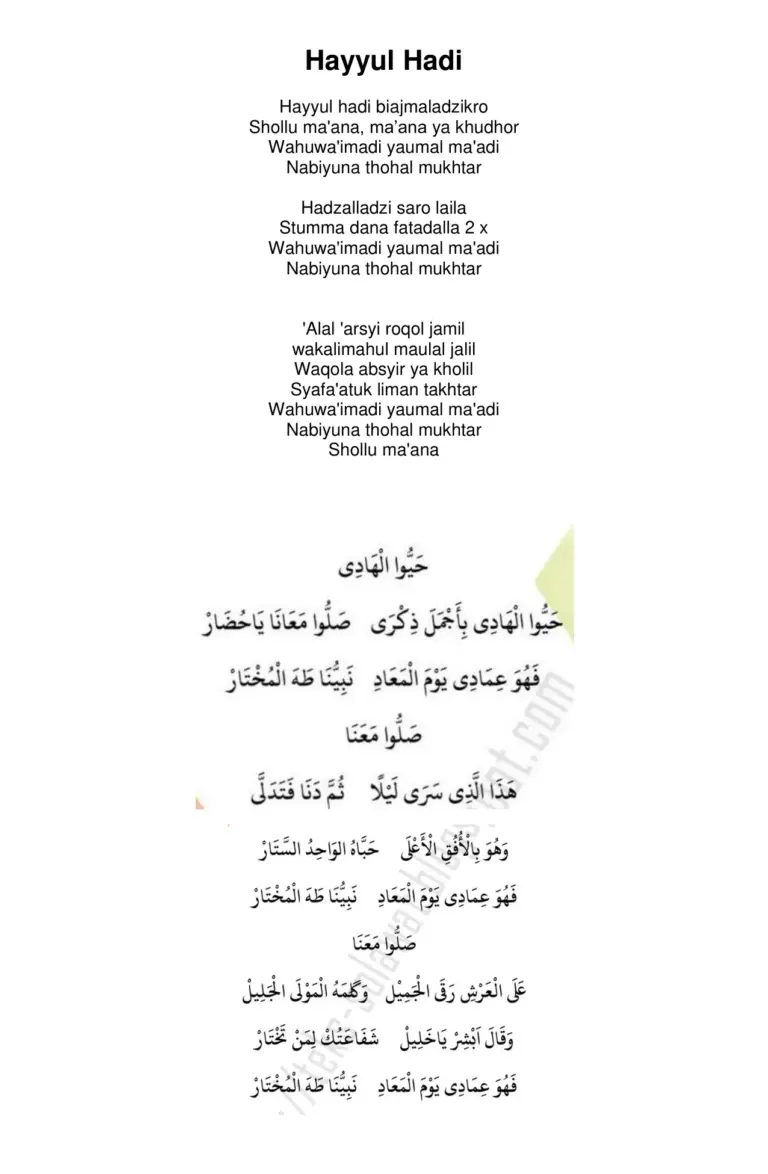 Hayyul Hadi
Hayyul hadi biajmaladzikro
Shollu ma'ana, ma’ana ya khudhor
Wahuwa'imadi yaumal ma'adi
Nabiyuna thohal mukhtar
Hadzalladzi saro laila
Stumma dana fatadalla 2 x
Wahuwa'imadi yaumal ma'adi
Nabiyuna thohal mukhtar
'Alal 'arsyi roqol jamil
wakalimahul maulal jalil
Waqola absyir ya kholil
Syafa'atuk liman takhtar
Wahuwa'imadi yaumal ma'adi
Nabiyuna thohal mukhtar
Shollu ma'ana
حَيُّوا الْهَادِى
حَيُّوا الْهَادِى بِأَجْمَلَ ذِكْرَى صَلُّوا مَعَانَا يَاحُضَارْ
فَهُوَ عِمَادِى يَوْمَ الْمَعَادِ نَبِيُّنَا طَهَ الْمُخْتَارْ
صَلُّوا مَعَنَا
هَذَا الَّذِى سَرَى لَيْلًا ثُمَّ دَنَا فَتَدَلَّى
وَهُوَ بِالْأُفُقِ الْأَعْلَى حَبَّاهُ الوَاحِدُ السَّتَارْ
فَهُوَ عِمَادِى يَوْمَ الْمَعَادِ نَبِيُّنَا طَهَ الْمُخْتَارْ
صَلُّوا مَعَنَا
عَلَى الْعَرْشِ رَقَى الْجَمِيْل وَكَلَمَهُ الْمَوْلَى الْجَلِيلْ
وَقَالَ اَبْشِرْ يَاخَلِيلْ شَفَاعَتُكْ لِمَنْ تَخْتَارْ
فَهُوَ عِمَادِى يَوْمَ الْمَعَادِ نَبِيُّنَا طَهَ الْمُخْتَارْ